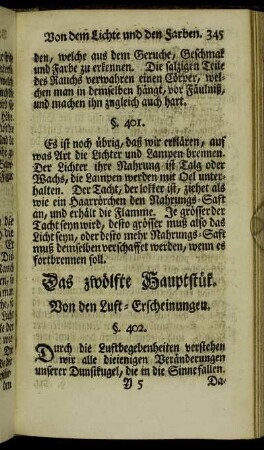 Von dem Lichte und den Farben. 345
den, welche aus dem Geruche, Geschmak
und Farbe zu erkennen. Die salzigen Teile
des Rauchs verwahren einen Cörper, wel-
chen man in demselben hängt, vor Fäulniß,
und machen ihn zugleich auch hart.
§. 401.
Es ist noch übrig, daß wir erklären, auf
was Art die Lichter und Lampen brennen.
Der Lichter ihre Nahrung ist Talg oder
Wachs, die Lampen werden mit Oel unter-
halten. Der Tacht, der loker ist, ziehet als
wie ein Haarrörchen den Nahrungs-Saft
an, und erhält die Flamme. Je grösser der
Tacht seyn wird, desto grösser muß also das
Licht seyn, oder desto mehr Nahrungs-Saft
muß demselben verschaffet werden, wenn es
fortbrennen soll.
Das zwölfte Hauptstük.
Von den Luft-Erscheinungen.
§. 402.
Durch die Luftbegebenheiten verstehen
wir alle dieienigen Veränderungen
unserer Dunstkugel, die in die Sinne fallen.
Y 5 Da-